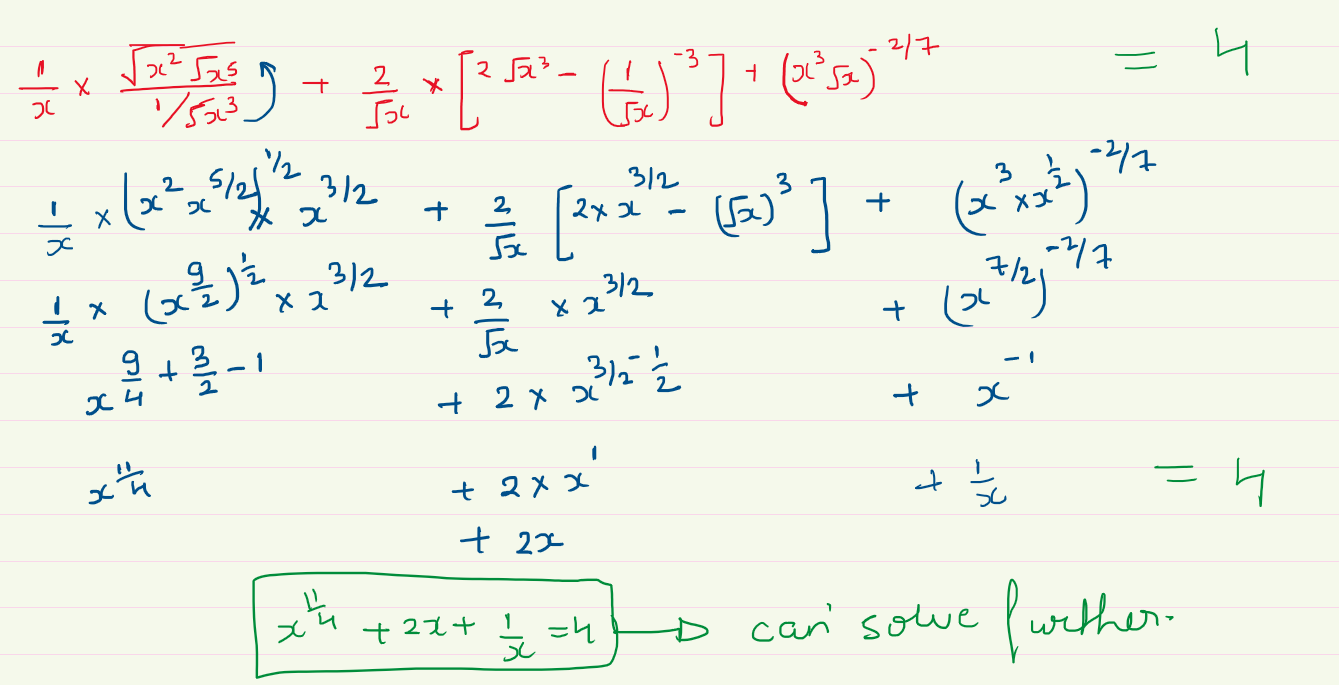 1/x × √(x² √x⁵) / (1/√x³) + 2/√x × [2 √x³ − (1/√x)⁻³] + (x³ √x)^(−2/7) = 4
1/x × (x² x^(5/2))^(1/2) × x^(3/2) + 2/√x [2 × x^(3/2) − (√x)³] + (x³ × x^(1/2))^(−2/7)
1/x × (x^(9/2))^(1/2) × x^(3/2) + 2/√x × x^(3/2) + (x^(7/2))^(−2/7)
x^(9/4 + 3/2 − 1) + 2 × x^(3/2 − 1/2) + x⁻¹
x^(11/4) + 2 × x¹ + 1/x = 4
+ 2x
x^(11/4) + 2x + 1/x = 4 → can' solve further.